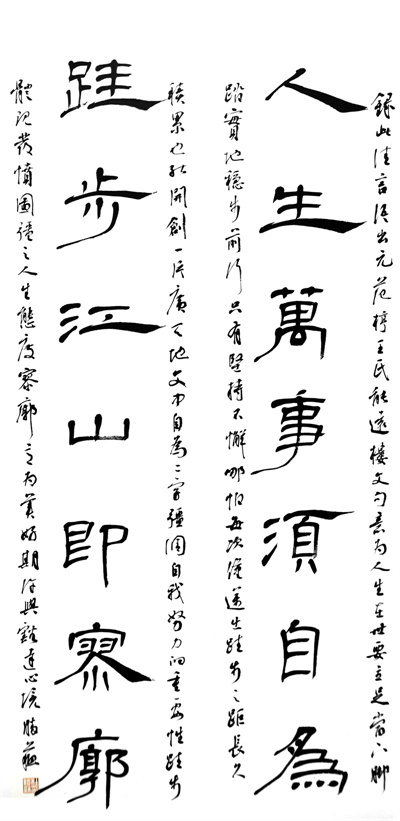 錄此佳言語出元范梈王氏能遠樓文句意為人生在世要立足當下腳
人生萬事須自為
踏實地穩步前行只有堅持不懈哪怕每次僅邁出跬步之距長久
積累也能開創一片廣天地文中自為二字彊調自我努力的重要性跬步
跬步江山即寥廓
體現發憤圖彊之人生態度寥廓意為美好期許與豁達心境